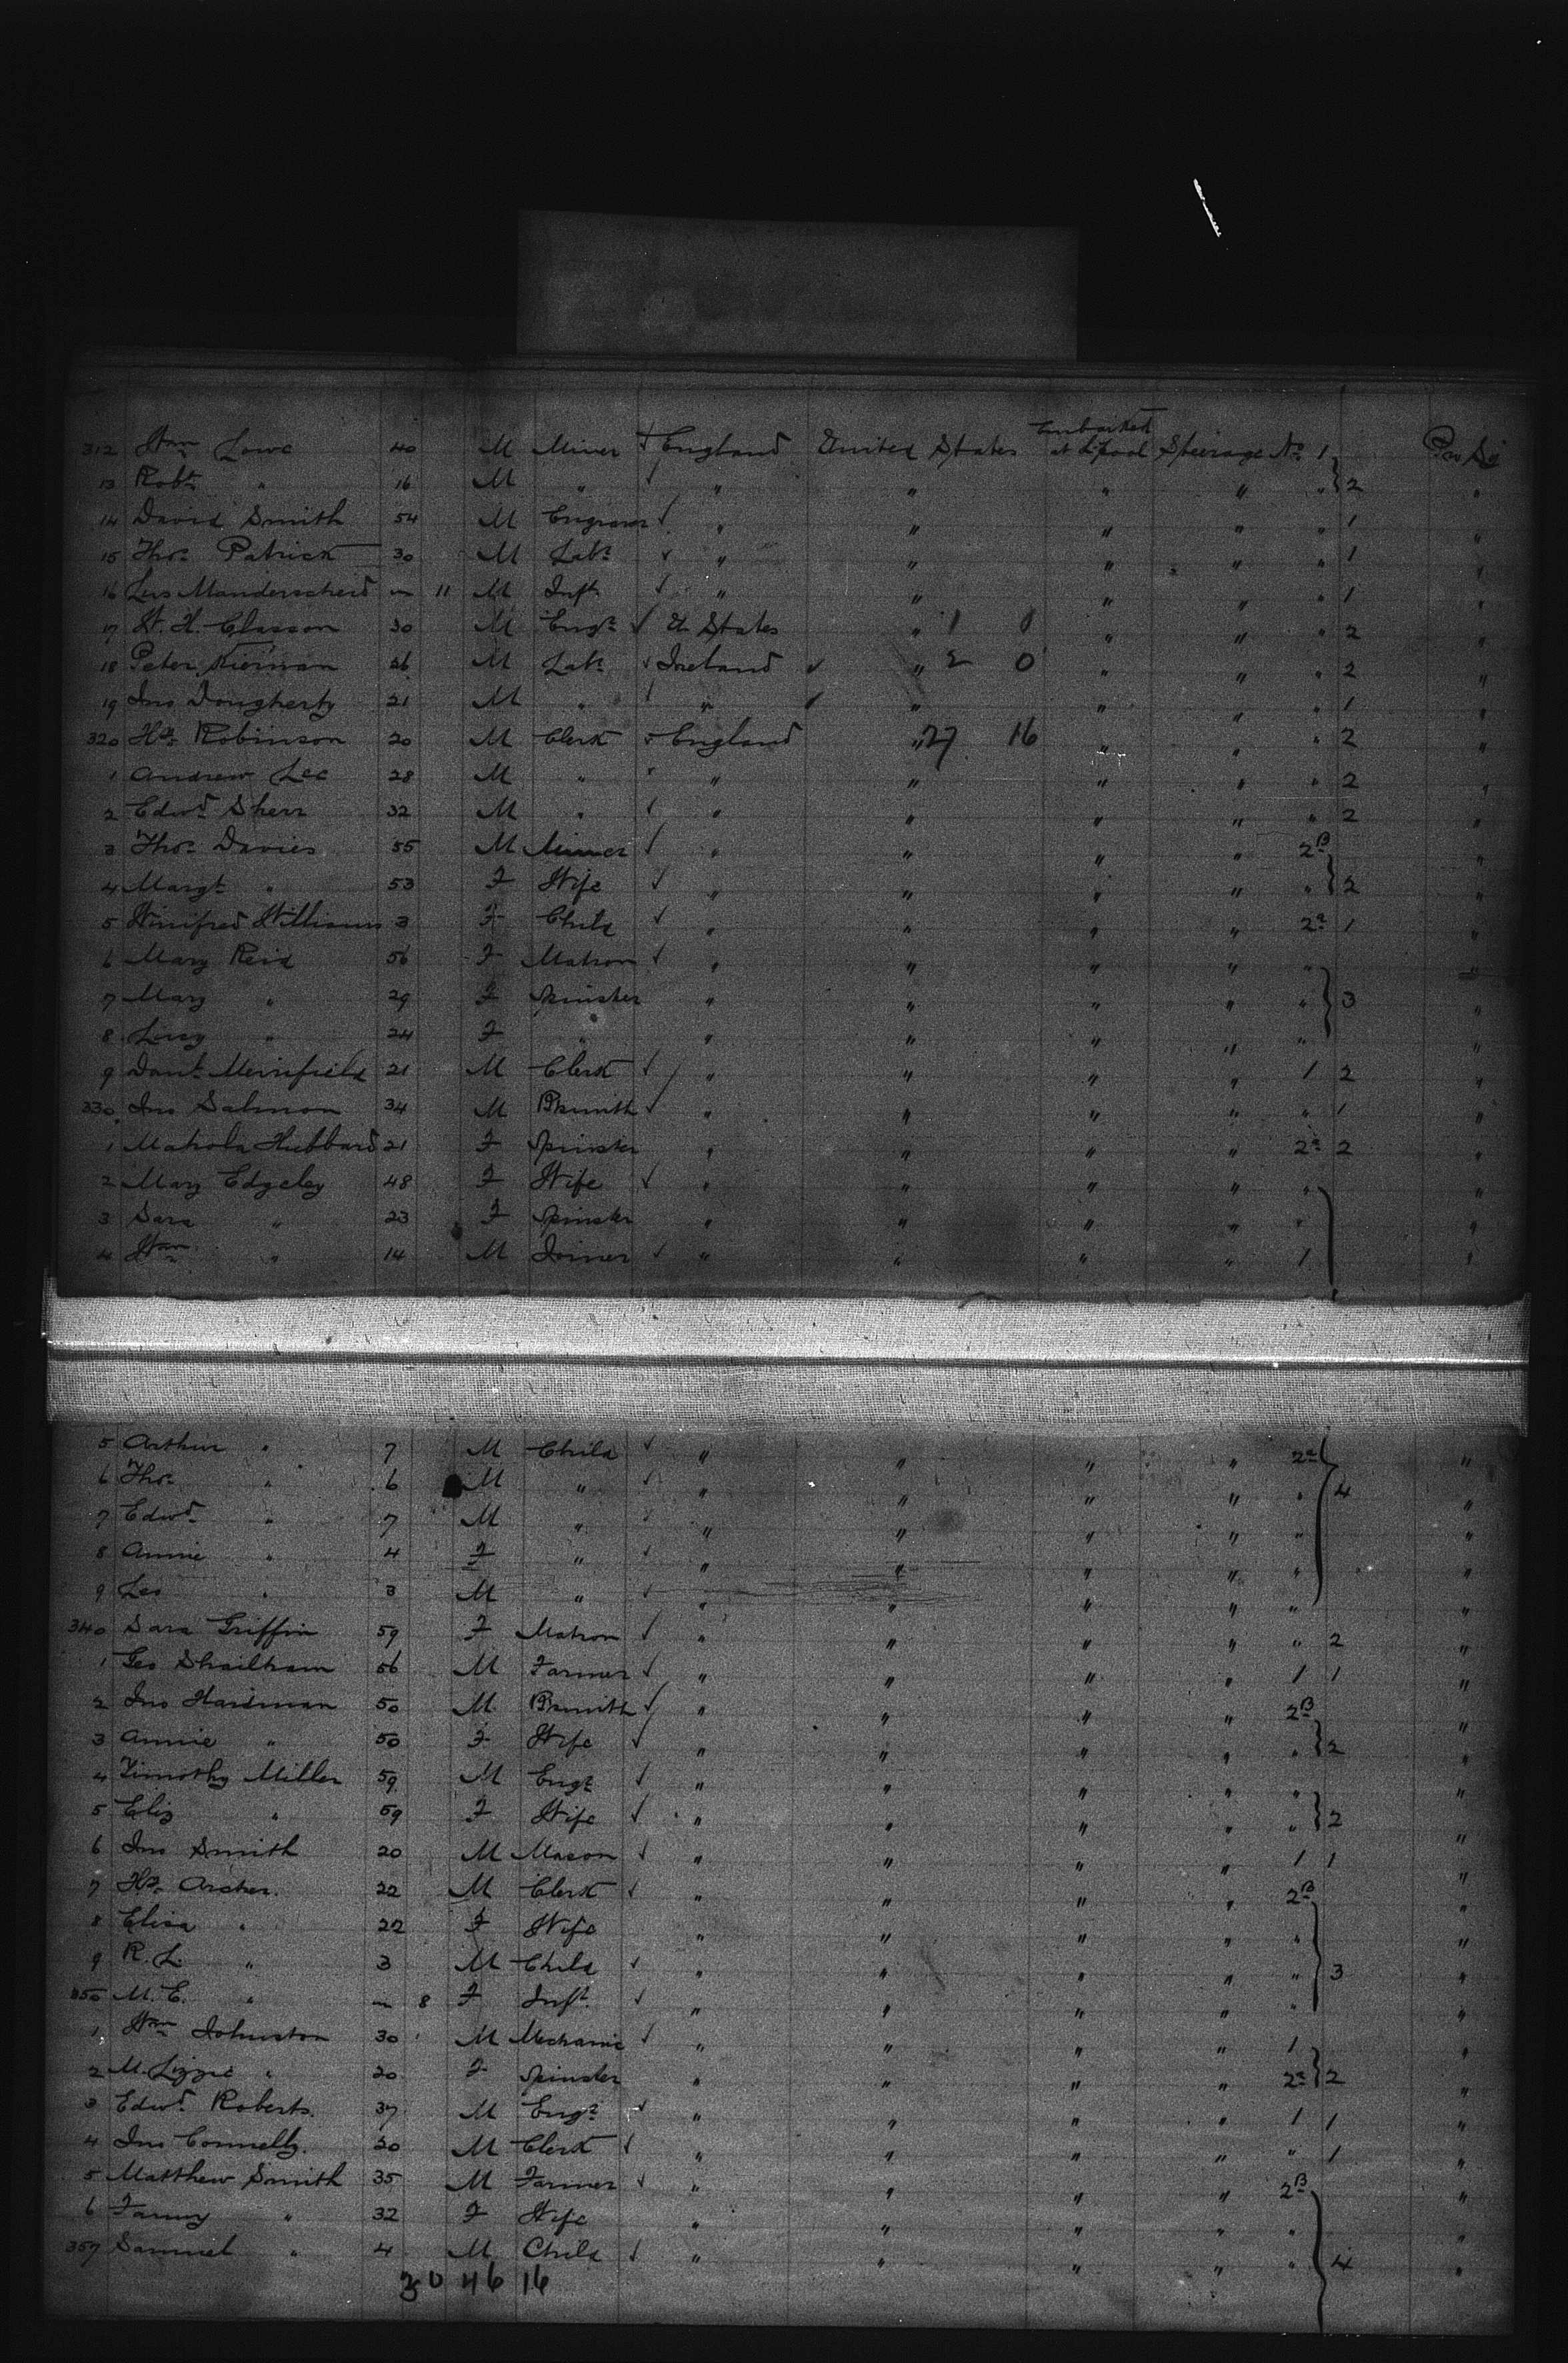 312 Wm Lowe 40 M Miner ✓ England United States Embarked at L'pool Steerage No 1
13 Robt " 16 M " ✓ " " " " " } 2 "
14 David Smith 54 M Engraver ✓ " " " " " 1 "
15 Thos Patrick 30 M Labr ✓ " " " " " 1 "
16 Manderscheid — 11 M Inft ✓ " " " " " 1 "
17 W. H. Classon 30 M Engr ✓ U States " 1 0 " " " 2 "
18 Peter Kiernan 26 M Labr ✓ Ireland ✓ " 2 0 " " " 2 "
19 Jno Dougherty 21 M " ✓ " ✓ " " " " 1 "
320 Hy Robinson 20 M Clerk ✓ England " 27 16 " " " 2 "
1 Andrew Lee 28 M " ✓ " " " " " 2 "
2 Edwd Sherr 32 M " ✓ " " " " " 2 "
3 Thos Davies 55 M Miner ✓ " " " " 2B "
4 Margt " 53 F Wife ✓ " " " " " } 2 "
5 Winifred Williams 3 F Child ✓ " " " " 2a 1 "
6 Mary Reid 56 F Matron ✓ " " " " " "
7 Mary " 29 F Spinster " " " " " } 3 "
8 Lucy " 24 F " " " " " " "
9 Danl Merrifield 21 M Clerk ✓ " " " " 1 2 "
330 Jno Salmon 34 M Bksmith ✓ " " " " " 1 "
1 Hubbard 21 F Spinster " " " " 2a 2 "
2 Mary Edgeley 48 F Wife ✓ " " " " " "
3 Sara " 23 F Spinster " " " " " "
4 Wm " 14 M Joiner ✓ " " " " 1 "
5 Arthur " 7 M Child ✓ " " " " 2a "
6 Thos " 6 M " ✓ " " " " " 4 "
7 Edwd " 7 M " ✓ " " " " " "
8 Annie " 4 F " ✓ " " " " " "
9 Leo " 3 M " ✓ " " " " " "
340 Sara Griffin 59 F Matron ✓ " " " " " 2 "
1 Geo 56 M Farmer ✓ " " " " 1 1 "
2 Jno Hardman 50 M Bksmith ✓ " " " " 2B "
3 Annie " 50 F Wife ✓ " " " " " } 2 "
4 Timothy Miller 59 M Engr ✓ " " " " " "
5 Eliz " 59 F Wife ✓ " " " " " } 2 "
6 Jno Smith 20 M Mason ✓ " " " " 1 1 "
7 Hy Archer 22 M Clerk ✓ " " " " 2B "
8 Eliza " 22 F Wife " " " " " "
9 R. L. " 3 M Child ✓ " " " " " } 3 "
350 M. E. " — 8 F Inft. ✓ " " " " " "
1 Wm Johnston 30 M Mechanic ✓ " " " " 1 "
2 M. Lizzie " 20 F Spinster " " " " 2a } 2 "
3 Edwd Roberts 37 M Engr ✓ " " " " 1 1 "
4 Jno Connelly 20 M Clerk ✓ " " " " " 1 "
5 Matthew Smith 35 M Farmer ✓ " " " " 2B "
6 Fanny " 32 F Wife " " " " " "
357 Samuel " 4 M Child ✓ " " " " " } 4 "
30 46 16